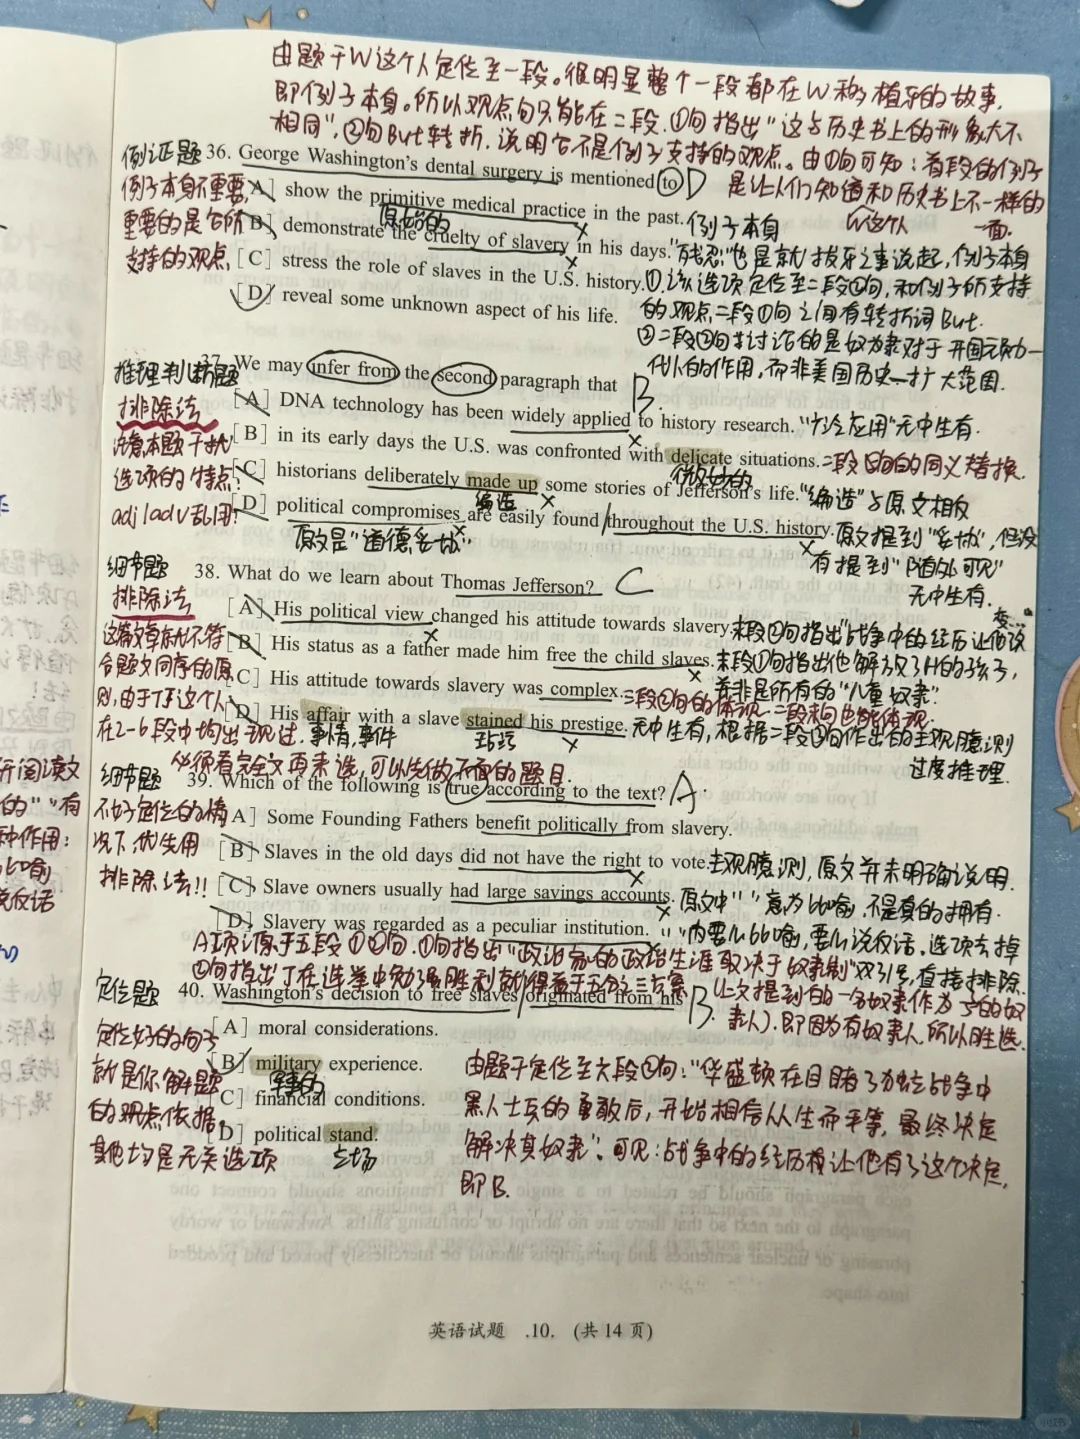 由题干W这个人定位至一段。很明显整个一段都在W和拔牙的故事,
即例子本身。所以观点句只能在二段.①句指出"这与历史书上的形象大不
相同",②句But转折.说明它不是例子支持的观点。由①句可知:首段的例子
是让人们知道和历史书上不一样的
W这个人 一面.
例证题
例子本身不重要,
重要的是它所
支持的观点,
36. George Washington's dental surgery is mentioned to D
[A] show the primitive medical practice in the past. 例子本身
原始的
[B] demonstrate the cruelty of slavery in his days. "残忍"也是就拔牙之事说起,例子本身
[C] stress the role of slaves in the U.S. history. ①该选项定位至二段②句,和例子所支持
的观点二段①句之间有转折词But.
[D] reveal some unknown aspect of his life.
②二段②句探讨论的是奴隶对于开国元勋一
代人的作用,而非美国历史—扩大范围.
推理判断题
排除法
注意本题干扰
选项的特点:
adj/adv乱用!
37. We may infer from the second paragraph that B.
[A] DNA technology has been widely applied to history research. "广泛应用"无中生有.
[B] in its early days the U.S. was confronted with delicate situations. 二段⑤句的同义替换.
微妙的
[C] historians deliberately made up some stories of Jefferson's life. "编造"与原文相反
编造
[D] political compromises are easily found throughout the U.S. history. 原文提到"妥协",但没
原文是"道德妥协"
有提到"随处可见"
无中生有.
细节题
排除法
这篇文章就不符
合题文同序的原
则,由于TJ这个人
在2-6段中均出现过.
必须看完全文再来选,可以先做下面的题目.
38. What do we learn about Thomas Jefferson? C
[A] His political view changed his attitude towards slavery. 末段②句指出"战争中的经历让他改
变…"
[B] His status as a father made him free the child slaves. 末段①句指出他解放了H的孩子,
并非是所有的"儿童奴隶"
[C] His attitude towards slavery was complex. 三段②句的体现.二段末句也能体现.
[D] His affair with a slave stained his prestige. 无中生有,根据二段③句作出的主观臆测
事情,事件 玷污
过度推理.
细节题
不好定位的情
况下,优先用
排除法!!
39. Which of the following is true according to the text? A.
[A] Some Founding Fathers benefit politically from slavery.
[B] Slaves in the old days did not have the right to vote. 主观臆测,原文并未明确说明.
[C] Slave owners usually had large savings accounts. 原文中" "意为比喻,不是真的拥有.
[D] Slavery was regarded as a peculiar institution. " "内要么比喻,要么说反话.选项去掉
双引号,直接排除.
A项源于五段①②句.①句指出"政治家的政治生涯取决于奴隶制"
②句指出了在选举中勉强胜利就得益于五分之三方案
(上文提到的一名奴隶作为3/5的奴
隶人).即因为有奴隶人,所以胜选.
定位题
定位好的句子
就是你解题
的观点依据,
其他均是无关选项
40. Washington's decision to free slaves originated from his B.
[A] moral considerations.
[B] military experience.
军事的
[C] financial conditions.
[D] political stand.
立场
由题干定位至六段②句:"华盛顿在目睹了独立战争中
黑人士兵的勇敢后,开始相信人生而平等,最终决定
解决其奴隶".可见:战争中的经历让他有了这个决定,
即B.
英语试题 .10. (共 14 页)